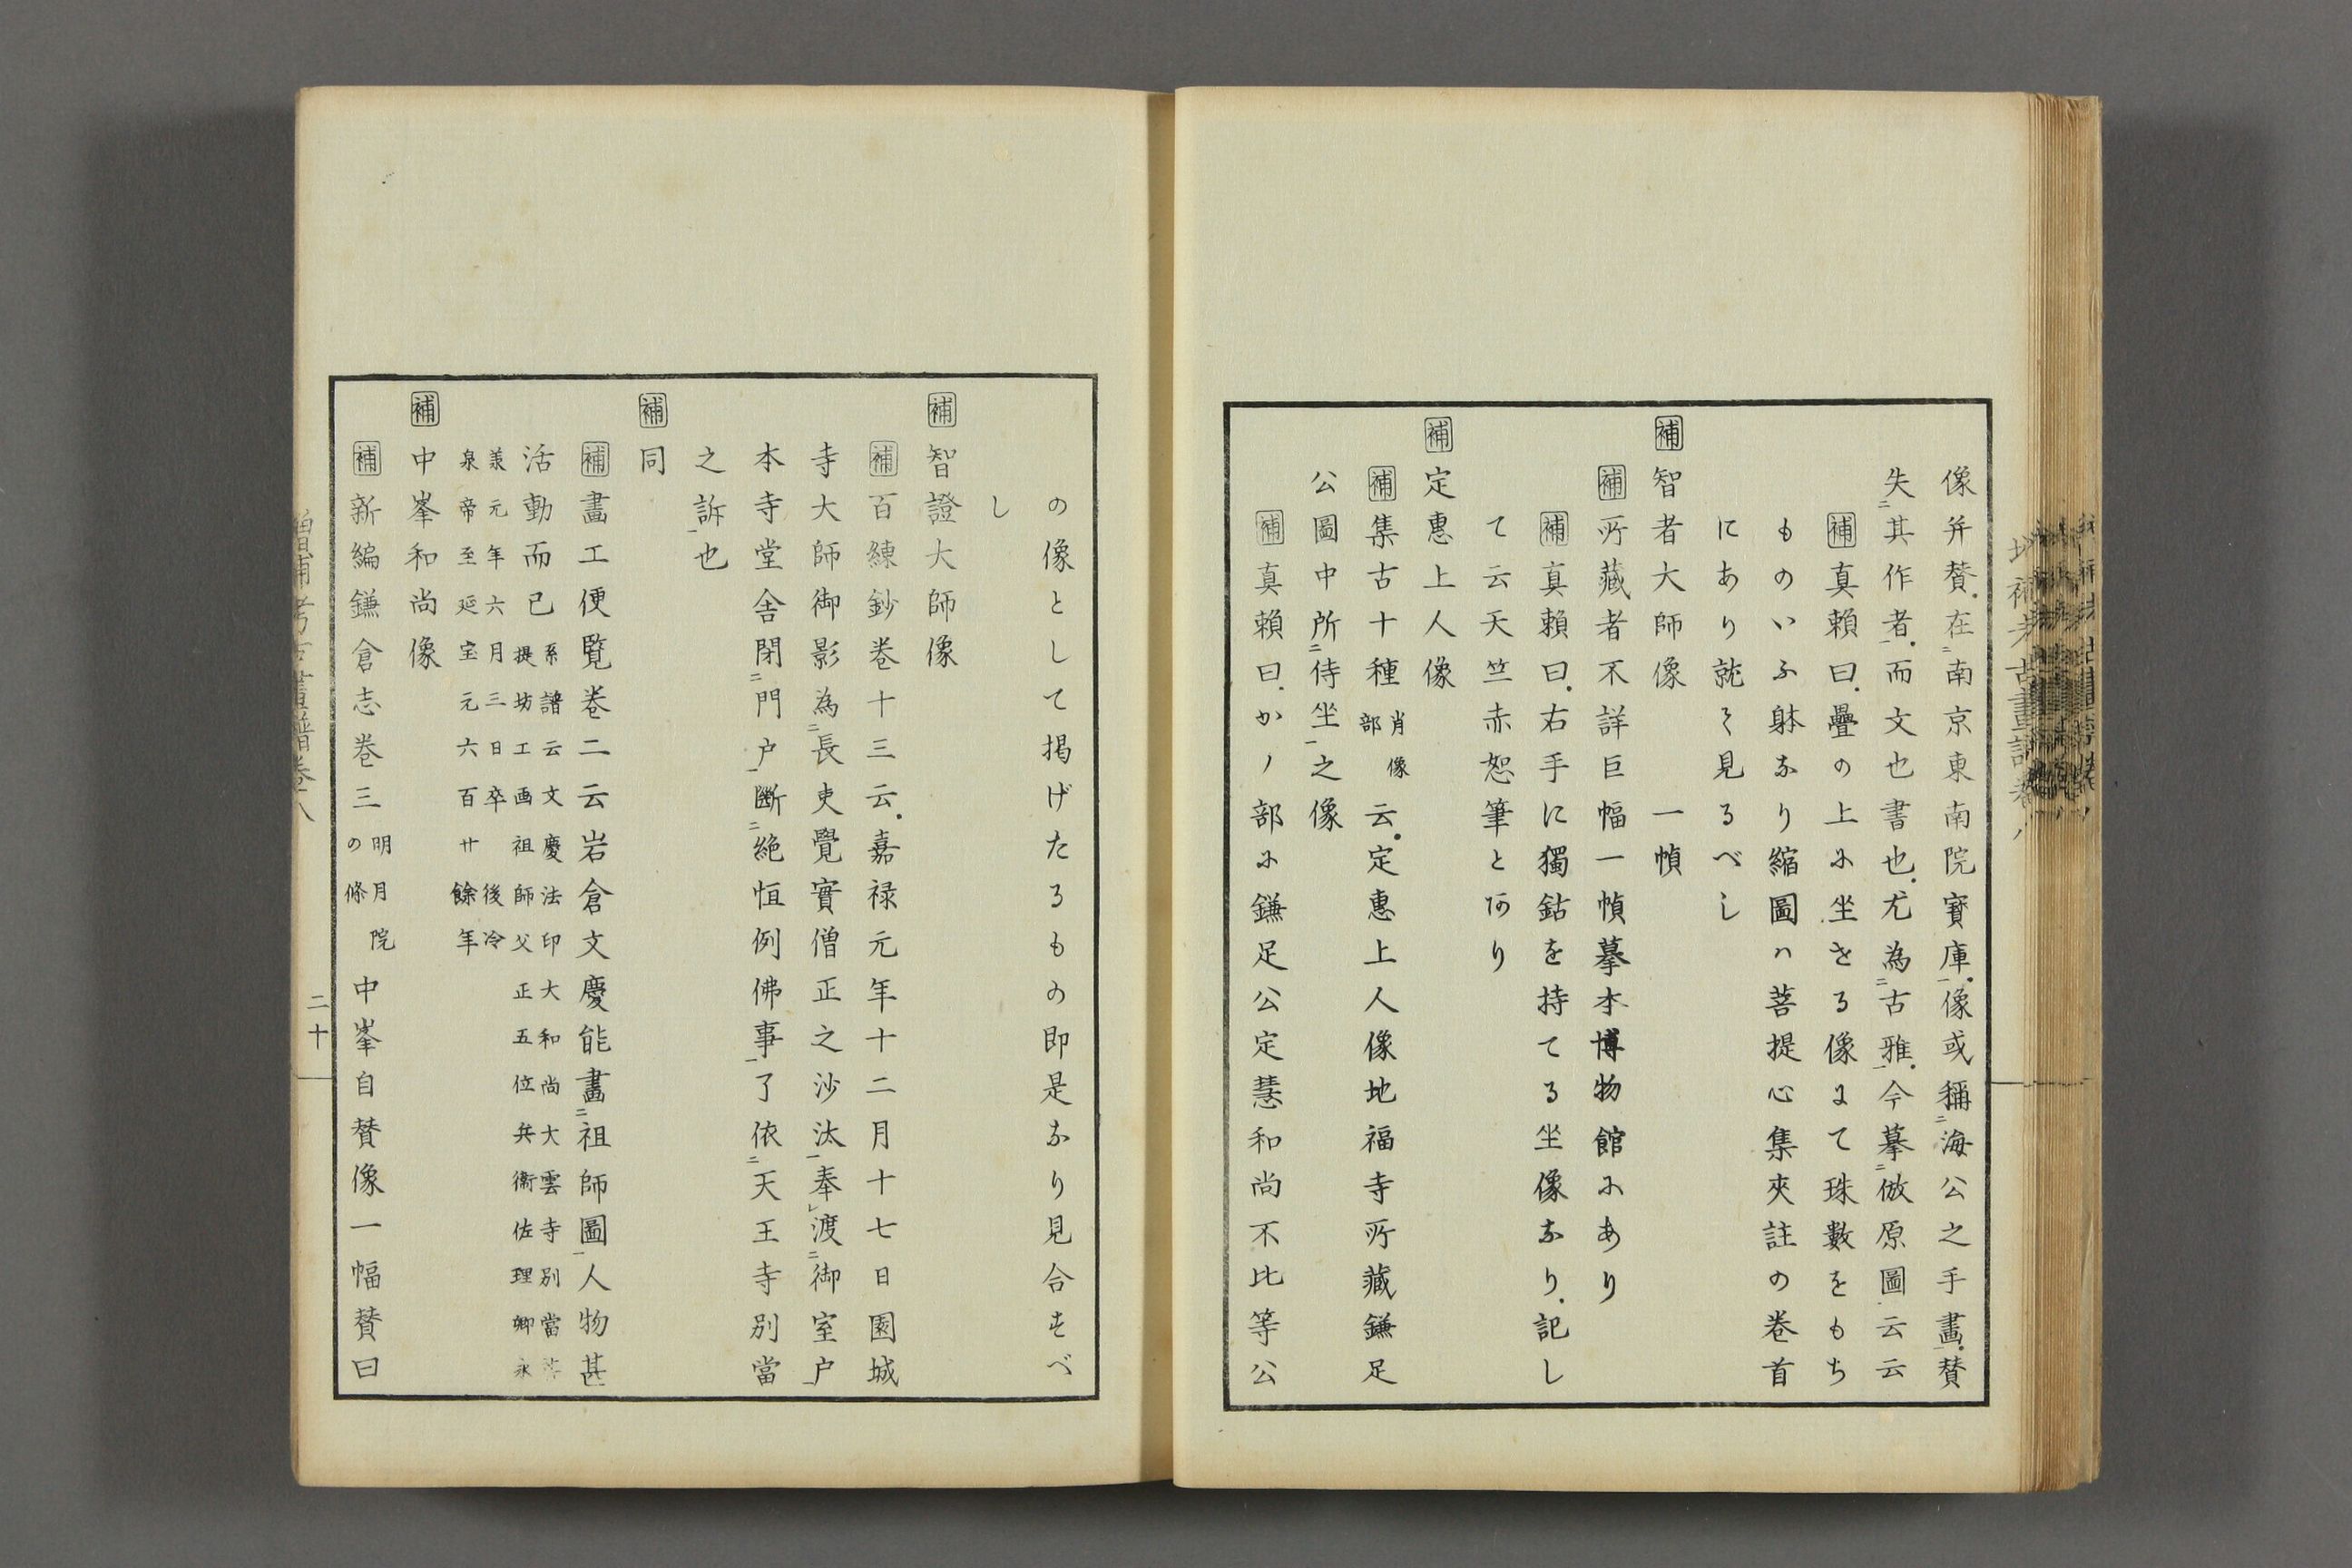 像并賛在南京東南院寶庫像或稱海公之手畫賛
失其作者而文也書也尤為古雅今摹倣原圖云云
補真賴曰疊の上に坐せる像にて珠數をもち
ものいふ躰なり縮圖ハ菩提心集夾註の巻首
にあり就て見るべし
補智者大師像　一幀
補所藏者不詳巨幅一幀摹本博物館にあり
補真賴曰右手に獨鈷を持てる坐像なり記し
て云天竺赤恕筆とあり
補定惠上人像
補集古十種肖像部云定惠上人像地福寺所藏鎌足
公圖中所侍坐之像
補真賴曰かノ部に鎌足公定慧和尚不比等公
の像として掲げたるもの即是なり見合すべ
し
補智證大師像
補百練鈔巻十三云嘉禄元年十二月十七日園城
寺大師御影為長吏覺實僧正之沙汰奉渡御室戸
本寺堂舎閉門戸斷絶恒例佛事了依天王寺別當
之訴也
補同
補畫工便覧巻二云岩倉文慶能畫祖師圖人物甚
活動而已系譜云文慶法印大和尚大雲寺別當
提坊工画祖師父正五位兵衞佐理卿永
義元年六月三日卒後冷
泉帝至延宝元六百廿餘年
補中峯和尚像
補新編鎌倉志巻三明月院の條中峯自賛像一幅賛曰
増補考古畫譜巻八
二十